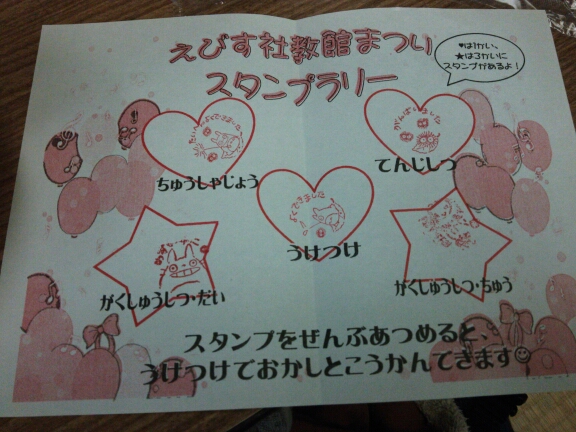 えびす社教館まつり
スタンプラリー
♥は1かい、
★は3かいに
スタンプがあるよ!
ちゅうしゃじょう
がんばりました
てんじしつ
よくできました
うけつけ
がくしゅうしつ・だい
がくしゅうしつ・ちゅう
スタンプをぜんぶあつめると、
うけつけでおかしとこうかんできます